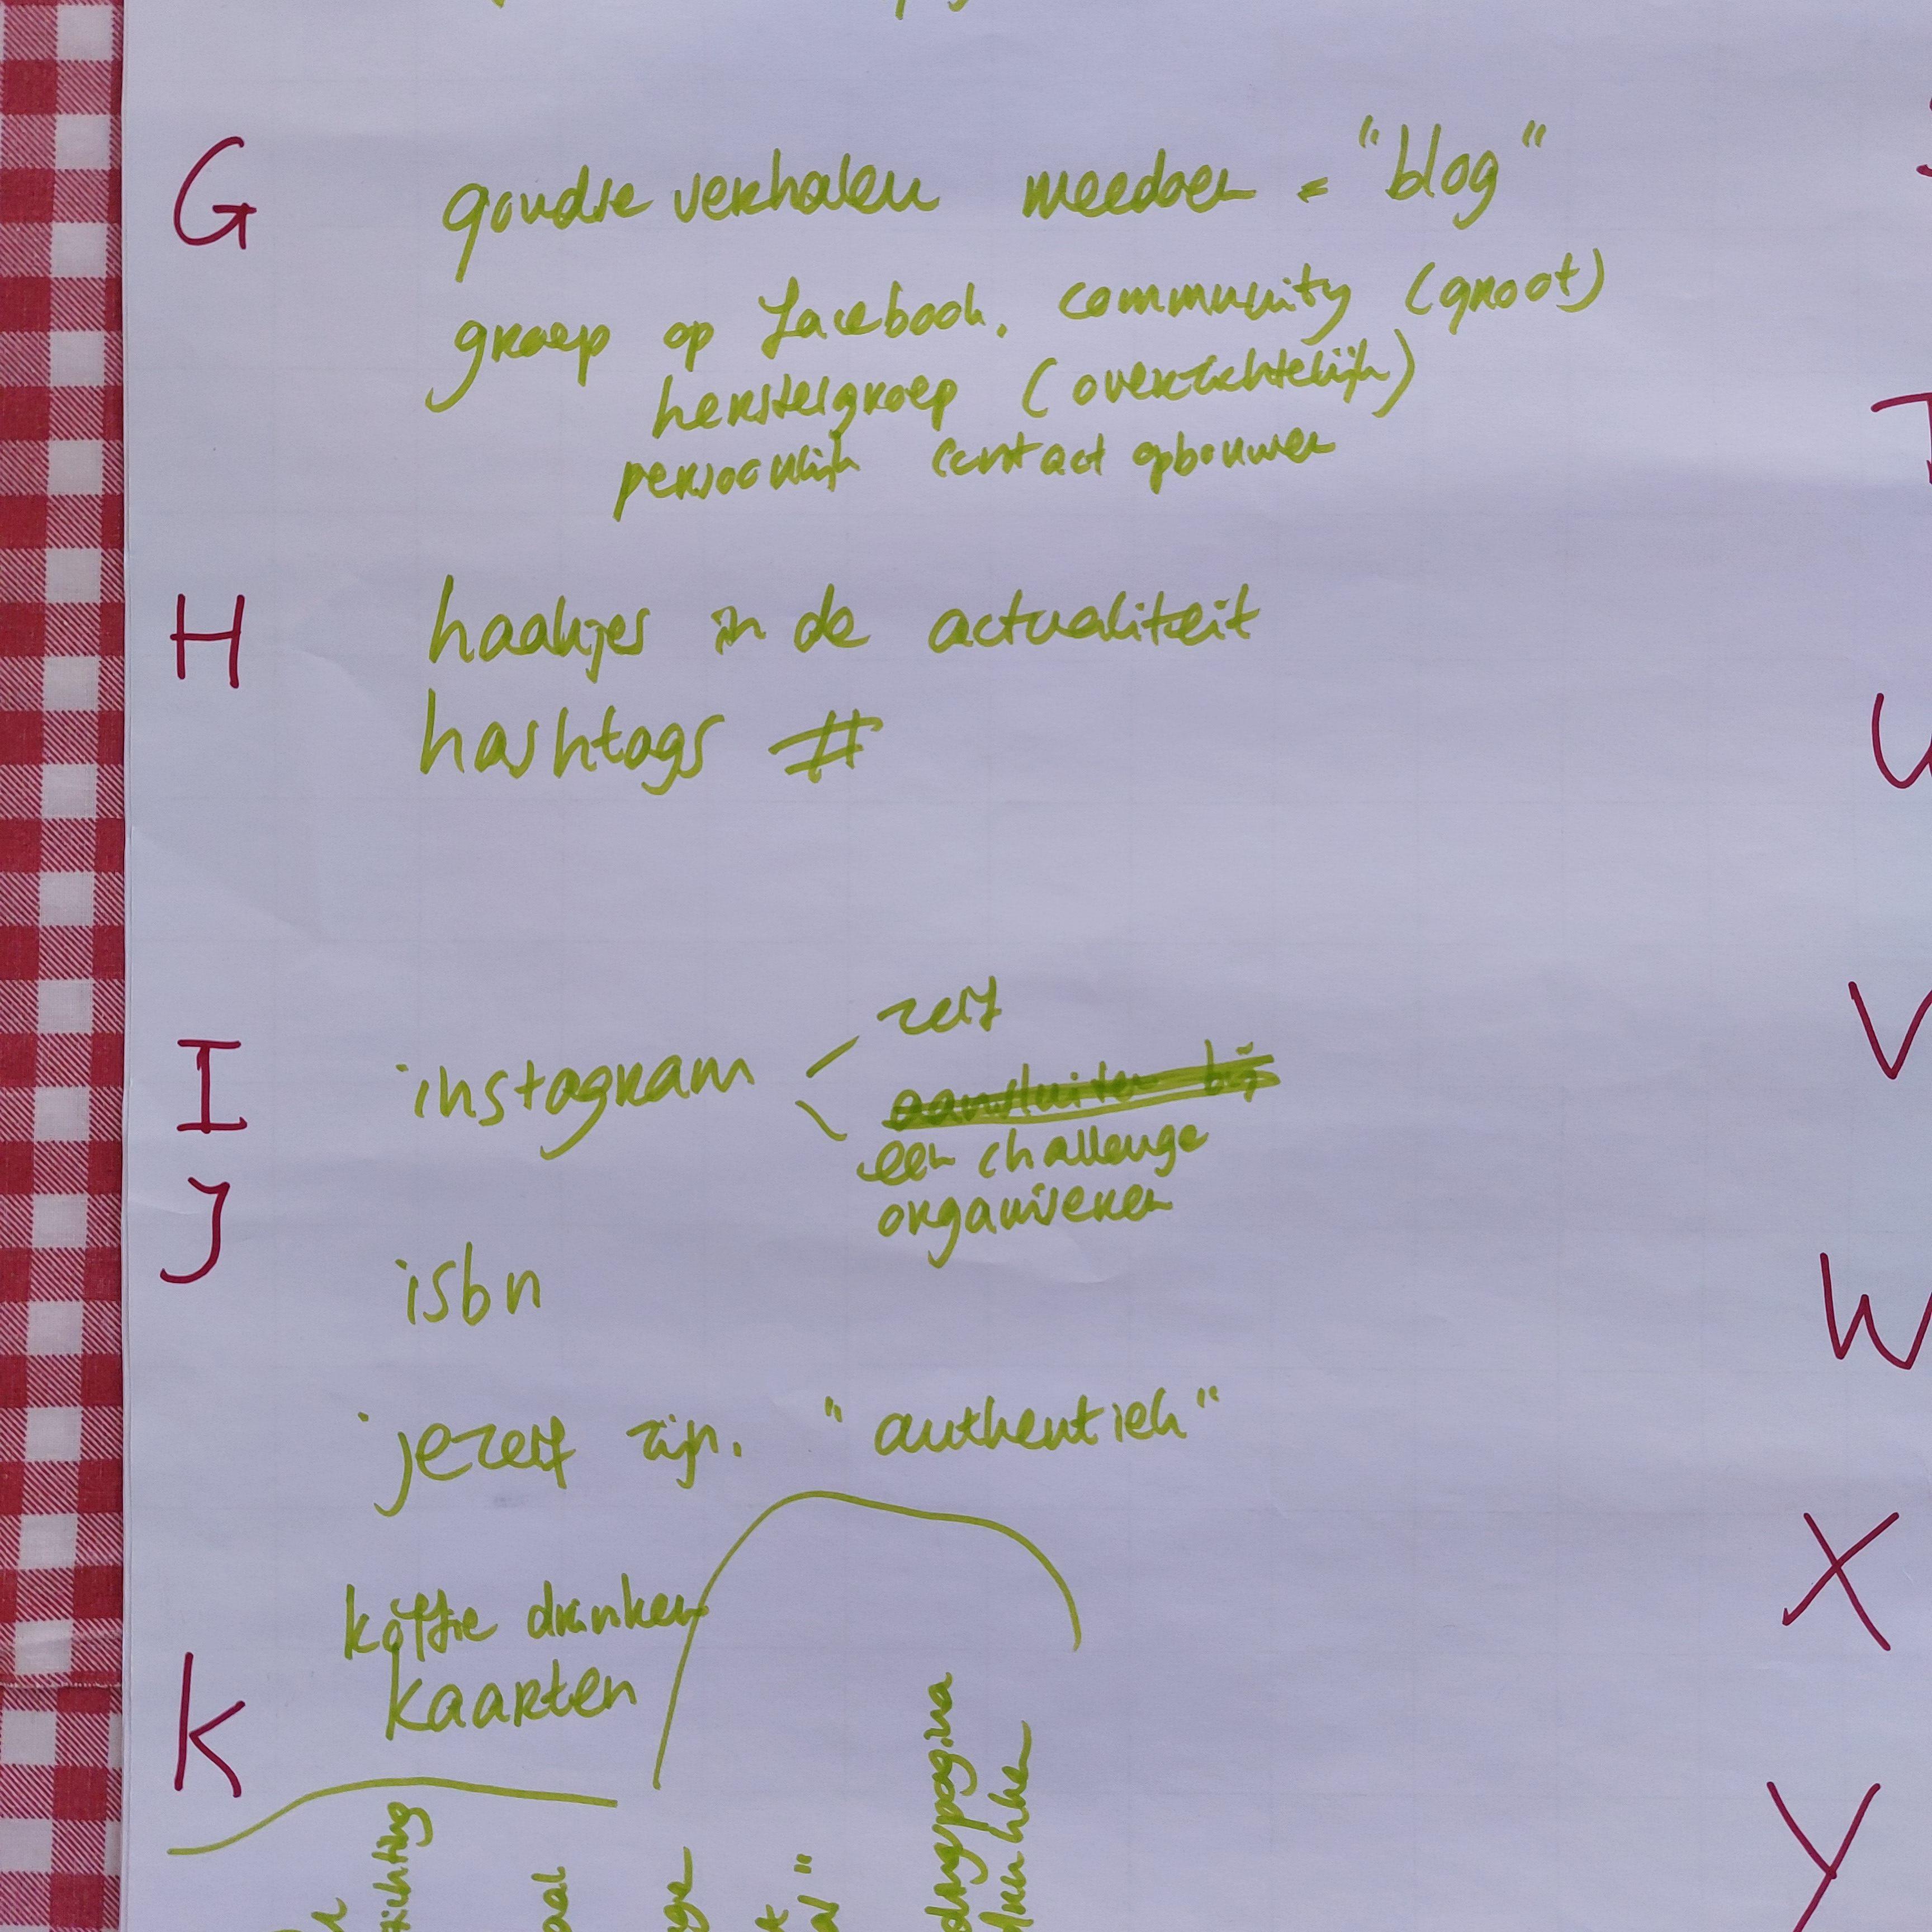 G goudse verhalen meedoen = "blog"
groep op facebook. community (groot)
herstelgroep (overzichtelijk)
persoonlijk contact opbouwen
H haakjes in de actualiteit
hashtags #
zelf
I instagram < aansluiten bij
een challenge
organiseren
J
isbn
jezelf zijn. "authentiek"
koffie drinken
K kaarten
U
V
W
X
Y